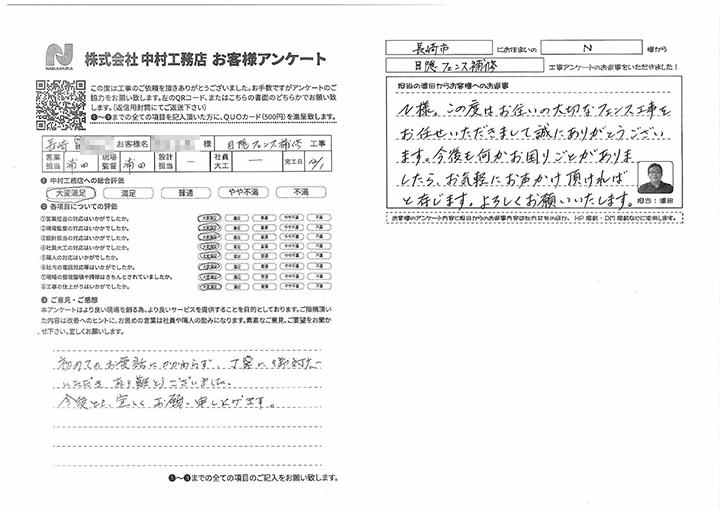 N
NAKAMURA
株式会社 中村工務店 お客様アンケート
この度は工事のご依頼を頂きありがとうございました。お手数ですがアンケートのご
協力をお願い致します。左のQRコード、またはこちらの書面のどちらかでお願い致
します。(返信用封筒にてご返送下さい)
❶〜❸までの全ての項目を記入頂いた方に、QUOカード(500円)を進呈致します。
長崎 お客様名 様 目隠フェンス補修 工事
営業担当 浦田 現場監督 浦田 設計担当 ー 社員大工 ー 完工日 12/1
❶ 中村工務店への総合評価
大変満足 満足 普通 やや不満 不満
❷ 各項目についての評価
①営業担当の対応はいかがでしたか。 大変満足 満足 普通 やや不満 不満
②現場監督の対応はいかがでしたか。 大変満足 満足 普通 やや不満 不満
③設計担当の対応はいかがでしたか。 大変満足 満足 普通 やや不満 不満
④社員大工の対応はいかがでしたか。 大変満足 満足 普通 やや不満 不満
⑤職人の対応はいかがでしたか。 大変満足 満足 普通 やや不満 不満
⑥社内の電話対応等はいかがでしたか。 大変満足 満足 普通 やや不満 不満
⑦現場の整理整頓や掃除はきちんとされていましたか。 大変満足 満足 普通 やや不満 不満
⑧工事の仕上がりはいかがでしたか。 大変満足 満足 普通 やや不満 不満
❸ ご意見・ご感想
本アンケートはより良い現場を創る為、より良いサービスを提供することを目的としております。ご指摘頂い
た内容は改善へのヒントに、お褒めの言葉は社員や職人の励みになります。素直なご意見、ご要望をお聞か
せ下さい。宜しくお願いします。
初めてのお電話にかかわらず、丁寧に
いただき 有り難とうございました。
今後とも、宜しく お願い申し上げます。
❶〜❸までの全ての項目のご記入をお願い致します。
長崎市 にお住まいの N 様から
目隠フェンス補修 工事アンケートのお返事をいただきました!
担当の浦田からお客様へのお返事
N様。この度はお住いの大切なフェンス工事を
お任せいただきまして誠にありがとうござい
ます。今後も何かお困りごとがありま
したら、お気軽にお声かけ頂ければ
と存じます。よろしくお願いいたします。
担当:浦田
お客様のアンケート内容と担当からのお返事内容は社内共有の他、HP掲載・DM掲載などに使用します。